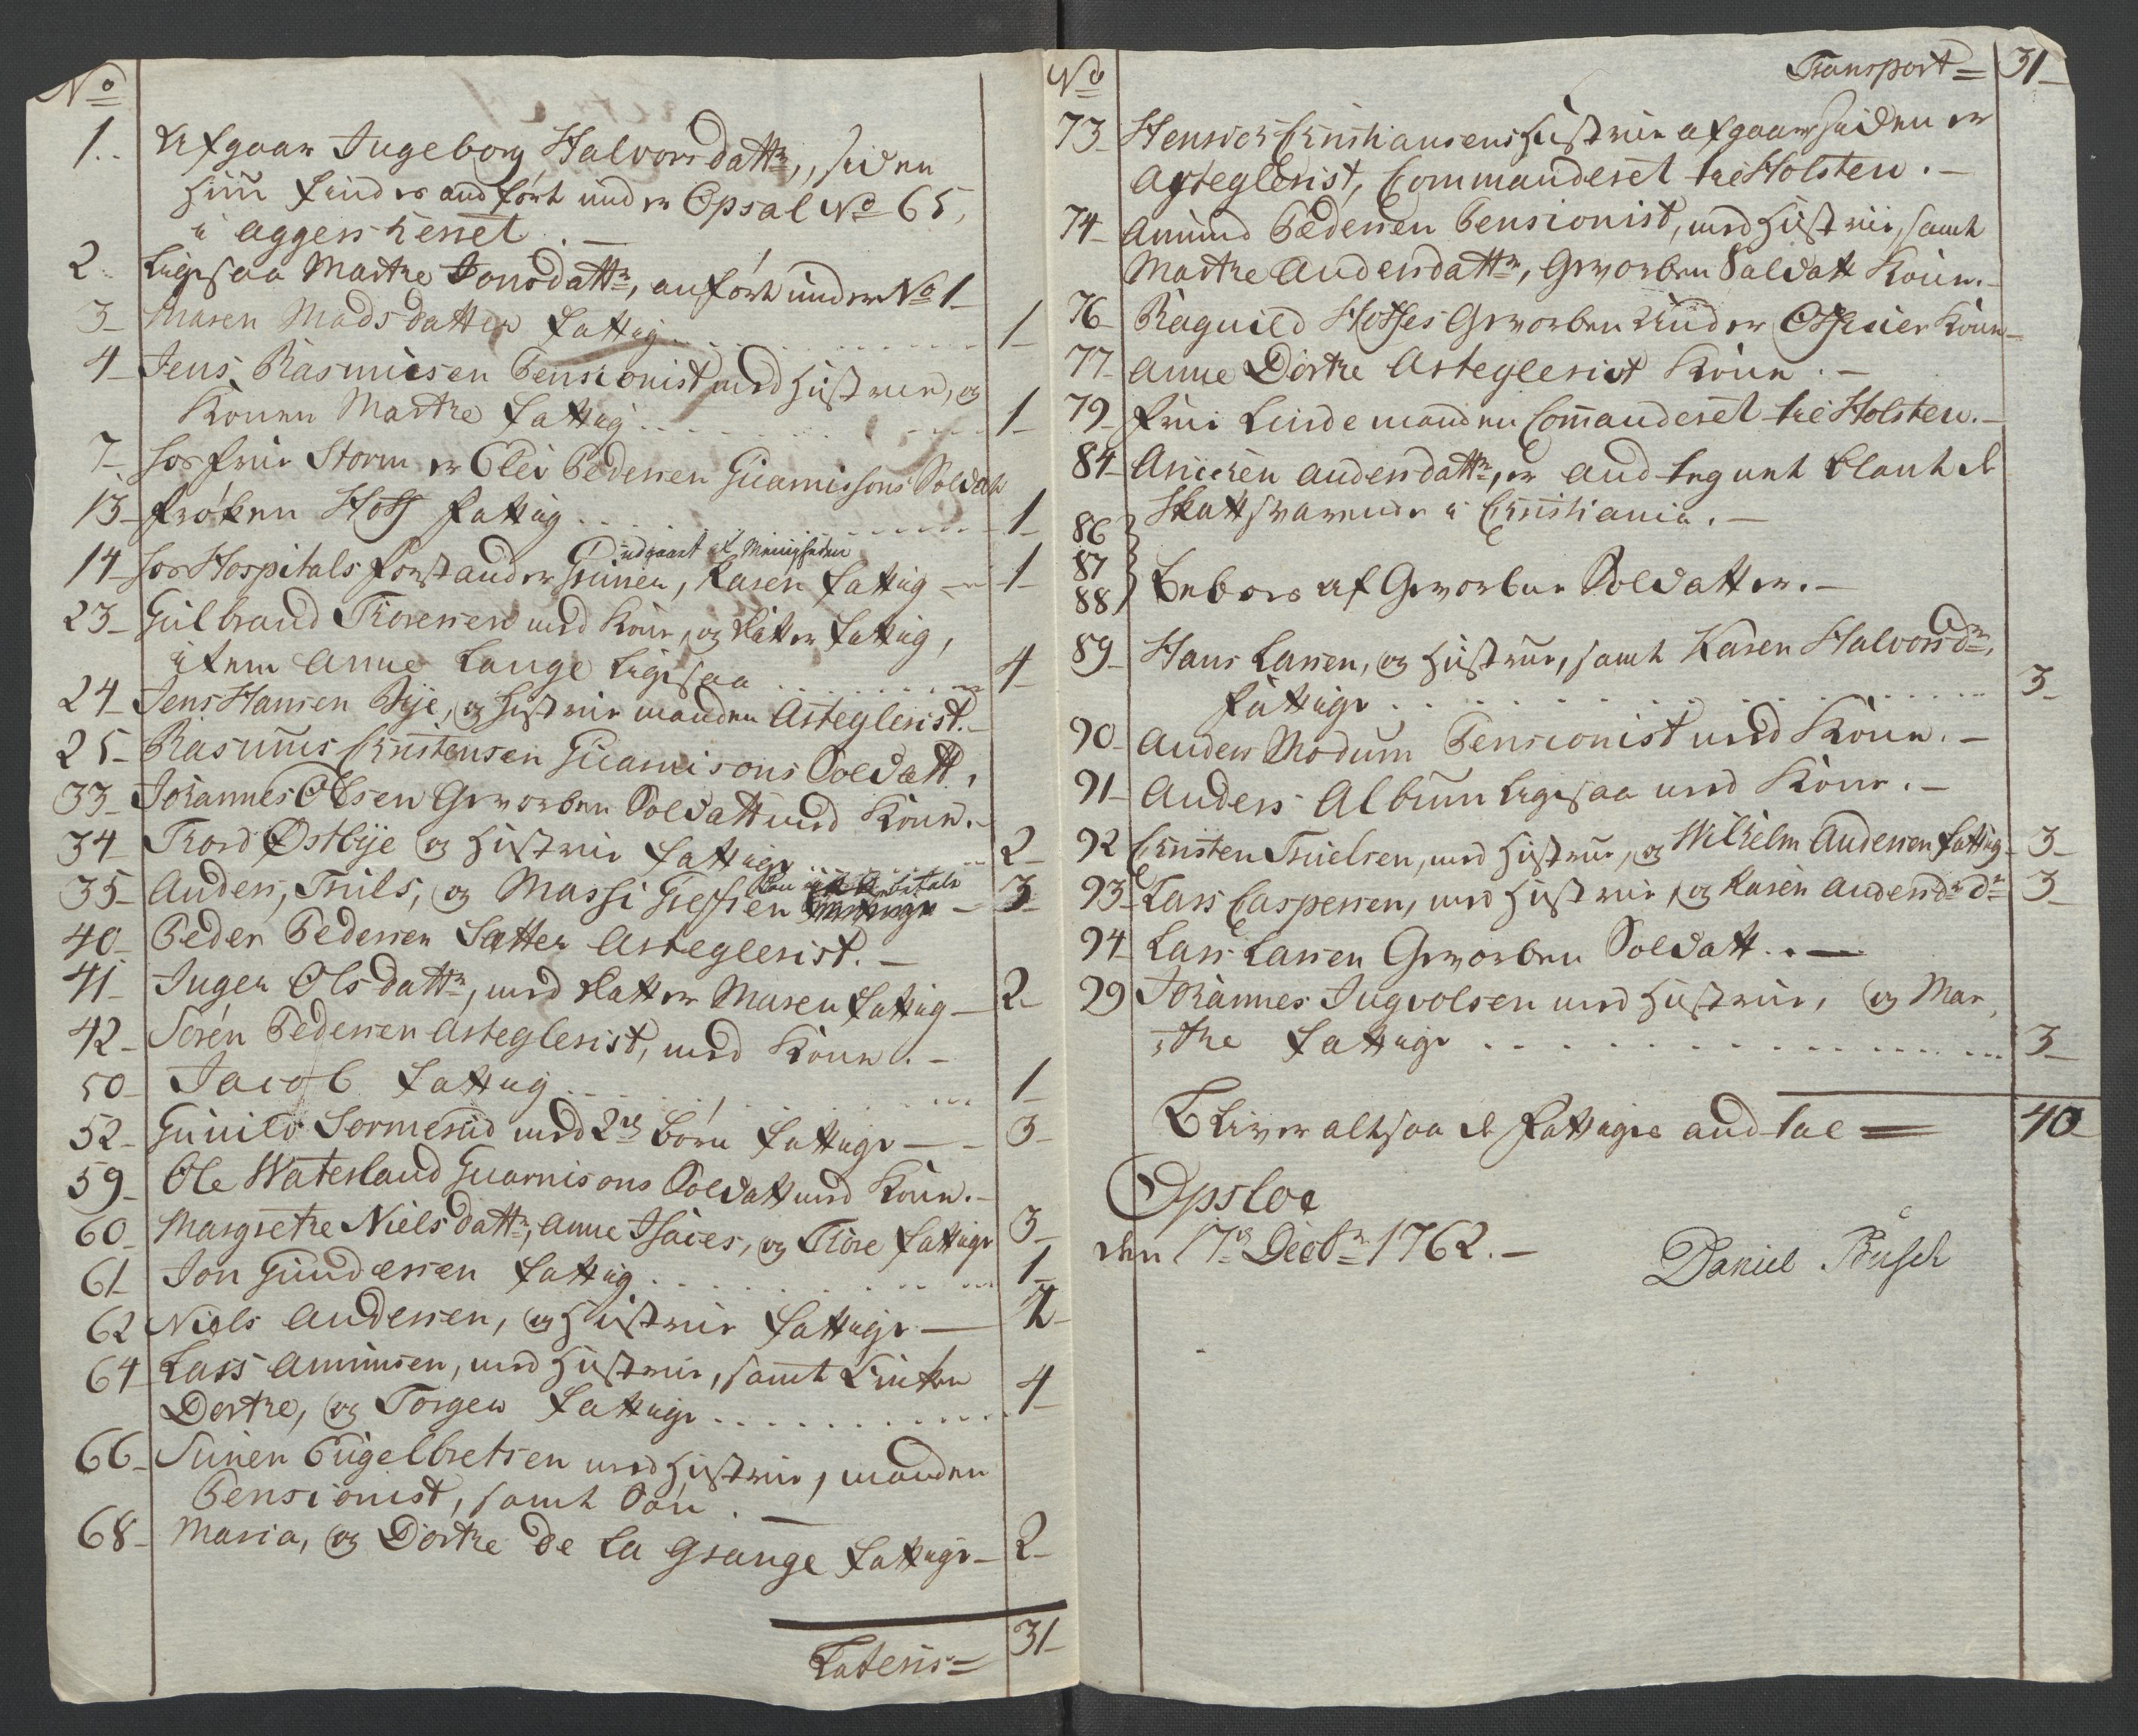 No
1.. Afgaar Ingeborg Halvorsdattr, siden
hun findes andført under Opsal No 65,
i Aggershereet. —
2. Ligesaa Marthe Jonsdattr, anført under No 1
3 Maren Madsdatter fattig . . . 1
4 Jens Rasmusen Pensionist med Hustrue, og
Konen Marthe fattig . . . 1
7 hos frue Storm er Peter Pedersen Guarnisons Soldat
13 frøken Hoff fattig . . . 1
udgaaet af Menigheden
14 hos Hospitals forstander Grüner, Karen fattig 1
23 Gulbrand Thoresen med Kone, og datter fattig,
item Anne Lange ligesaa . . . 4
24 Jens Hansen Bye, og Hustrue manden Arteglerist. —
25 Rasmus Christensen Guarnisons Soldatt,
33 Johannes Olsen Gevorben Soldatt med Kone. —
34 Thord Østbye og Hustrue fattige . . . 2
35 Anders, Truls, og Massi Gressen 3
40 Peder Pedersen Satter Arteglerist. —
41 Inger Olsdattr, med datter Maren fattig — 2
42 Sørén Pedersen Arteglerist, med Kone. —
50 Jacob fattig . . . 1
52 Gunild Sormerud med 2de børn fattige — 3
59 Ole Waterland Guarnisons Soldatt med Kone. —
60 Margrethe Nielsdattr, Anne Isaces, og Thore fattige 3
61 Jon Gundersen fattig . . . 1
62 Niels Andersen, og Hustrue fattige — 2
64 Lars Amunsen, med Hustrue, samt Enken
Dorthe, og Torger fattige . . . 4
66 Suner Engelbretsen med Hustrue, manden
Pensionist, samt Søn. —
68 Maria, og Dorthe de la Grange fattige — 2
Lateris = 31
No Transport = 31
73 Henrich Christiansens Hustrue afgaar, siden er
Arteglerist, Commanderet til Holsten. —
74 Amund Pedersen Pensionist, med Hustrue, samt
Marthe Andersdattr, Gevorben Saldatt Kone. —
76 Ragnild Hoffes Gevorben Under Officier Kone —
77 Anne Dorthe Arteglerist Kone. —
79 frue Linde manden Commanderet til Holsten. —
84 Anichen Andersdattr, er andtegnet blant de
Skattsvarende i Christiania. —
86
87 Beboes af Gevorbne Soldatter. —
88
89 Hans Larsen, og Hustrue, samt Karen Halvorsdr,
fattige . . . 3
90 Anders Modum Pensionist med Kone. —
91 Anders Album ligesaa med Kone. —
92 Christen Truelsen, med Hustrue, og Wilhelm Andersen fattig 3
93 Lars Caspersen, med Hustrue, og Karen Andersdr do 3
94 Lars Larsen Gevorben Soldatt. —
99 Johannes Ingvolsen med Hustrue, og Mar,
,the fattige . . . 3
Bliver altsaa de fattiges andtal = 40
Opsloe
den 17de Decbr 1762. —
Daniel Büsch